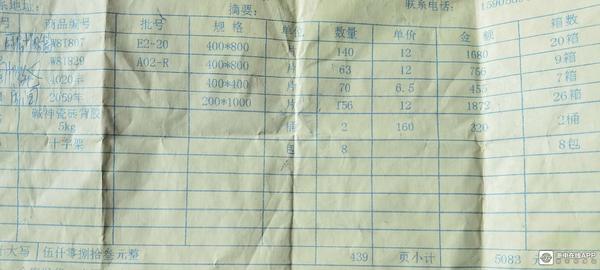 系地址: 摘要: 联系电话:
商品编号 批号 规 格 单位 数量 单价 金 额 箱数
W8T807 E2-20 400*800 片 140 12 1680 20箱
A02-R 400*800 片 63 12 756 9箱
4020年 400*400 片 70 6.5 455 7箱
2059年 200*1000 片 156 12 1872 26箱
瓷砖背胶
5kg 桶 2 160 320 2桶
十字架 包 8 8包
大写 伍仟零捌拾叁元整 439 页小计 5083 元
浙中在线APP